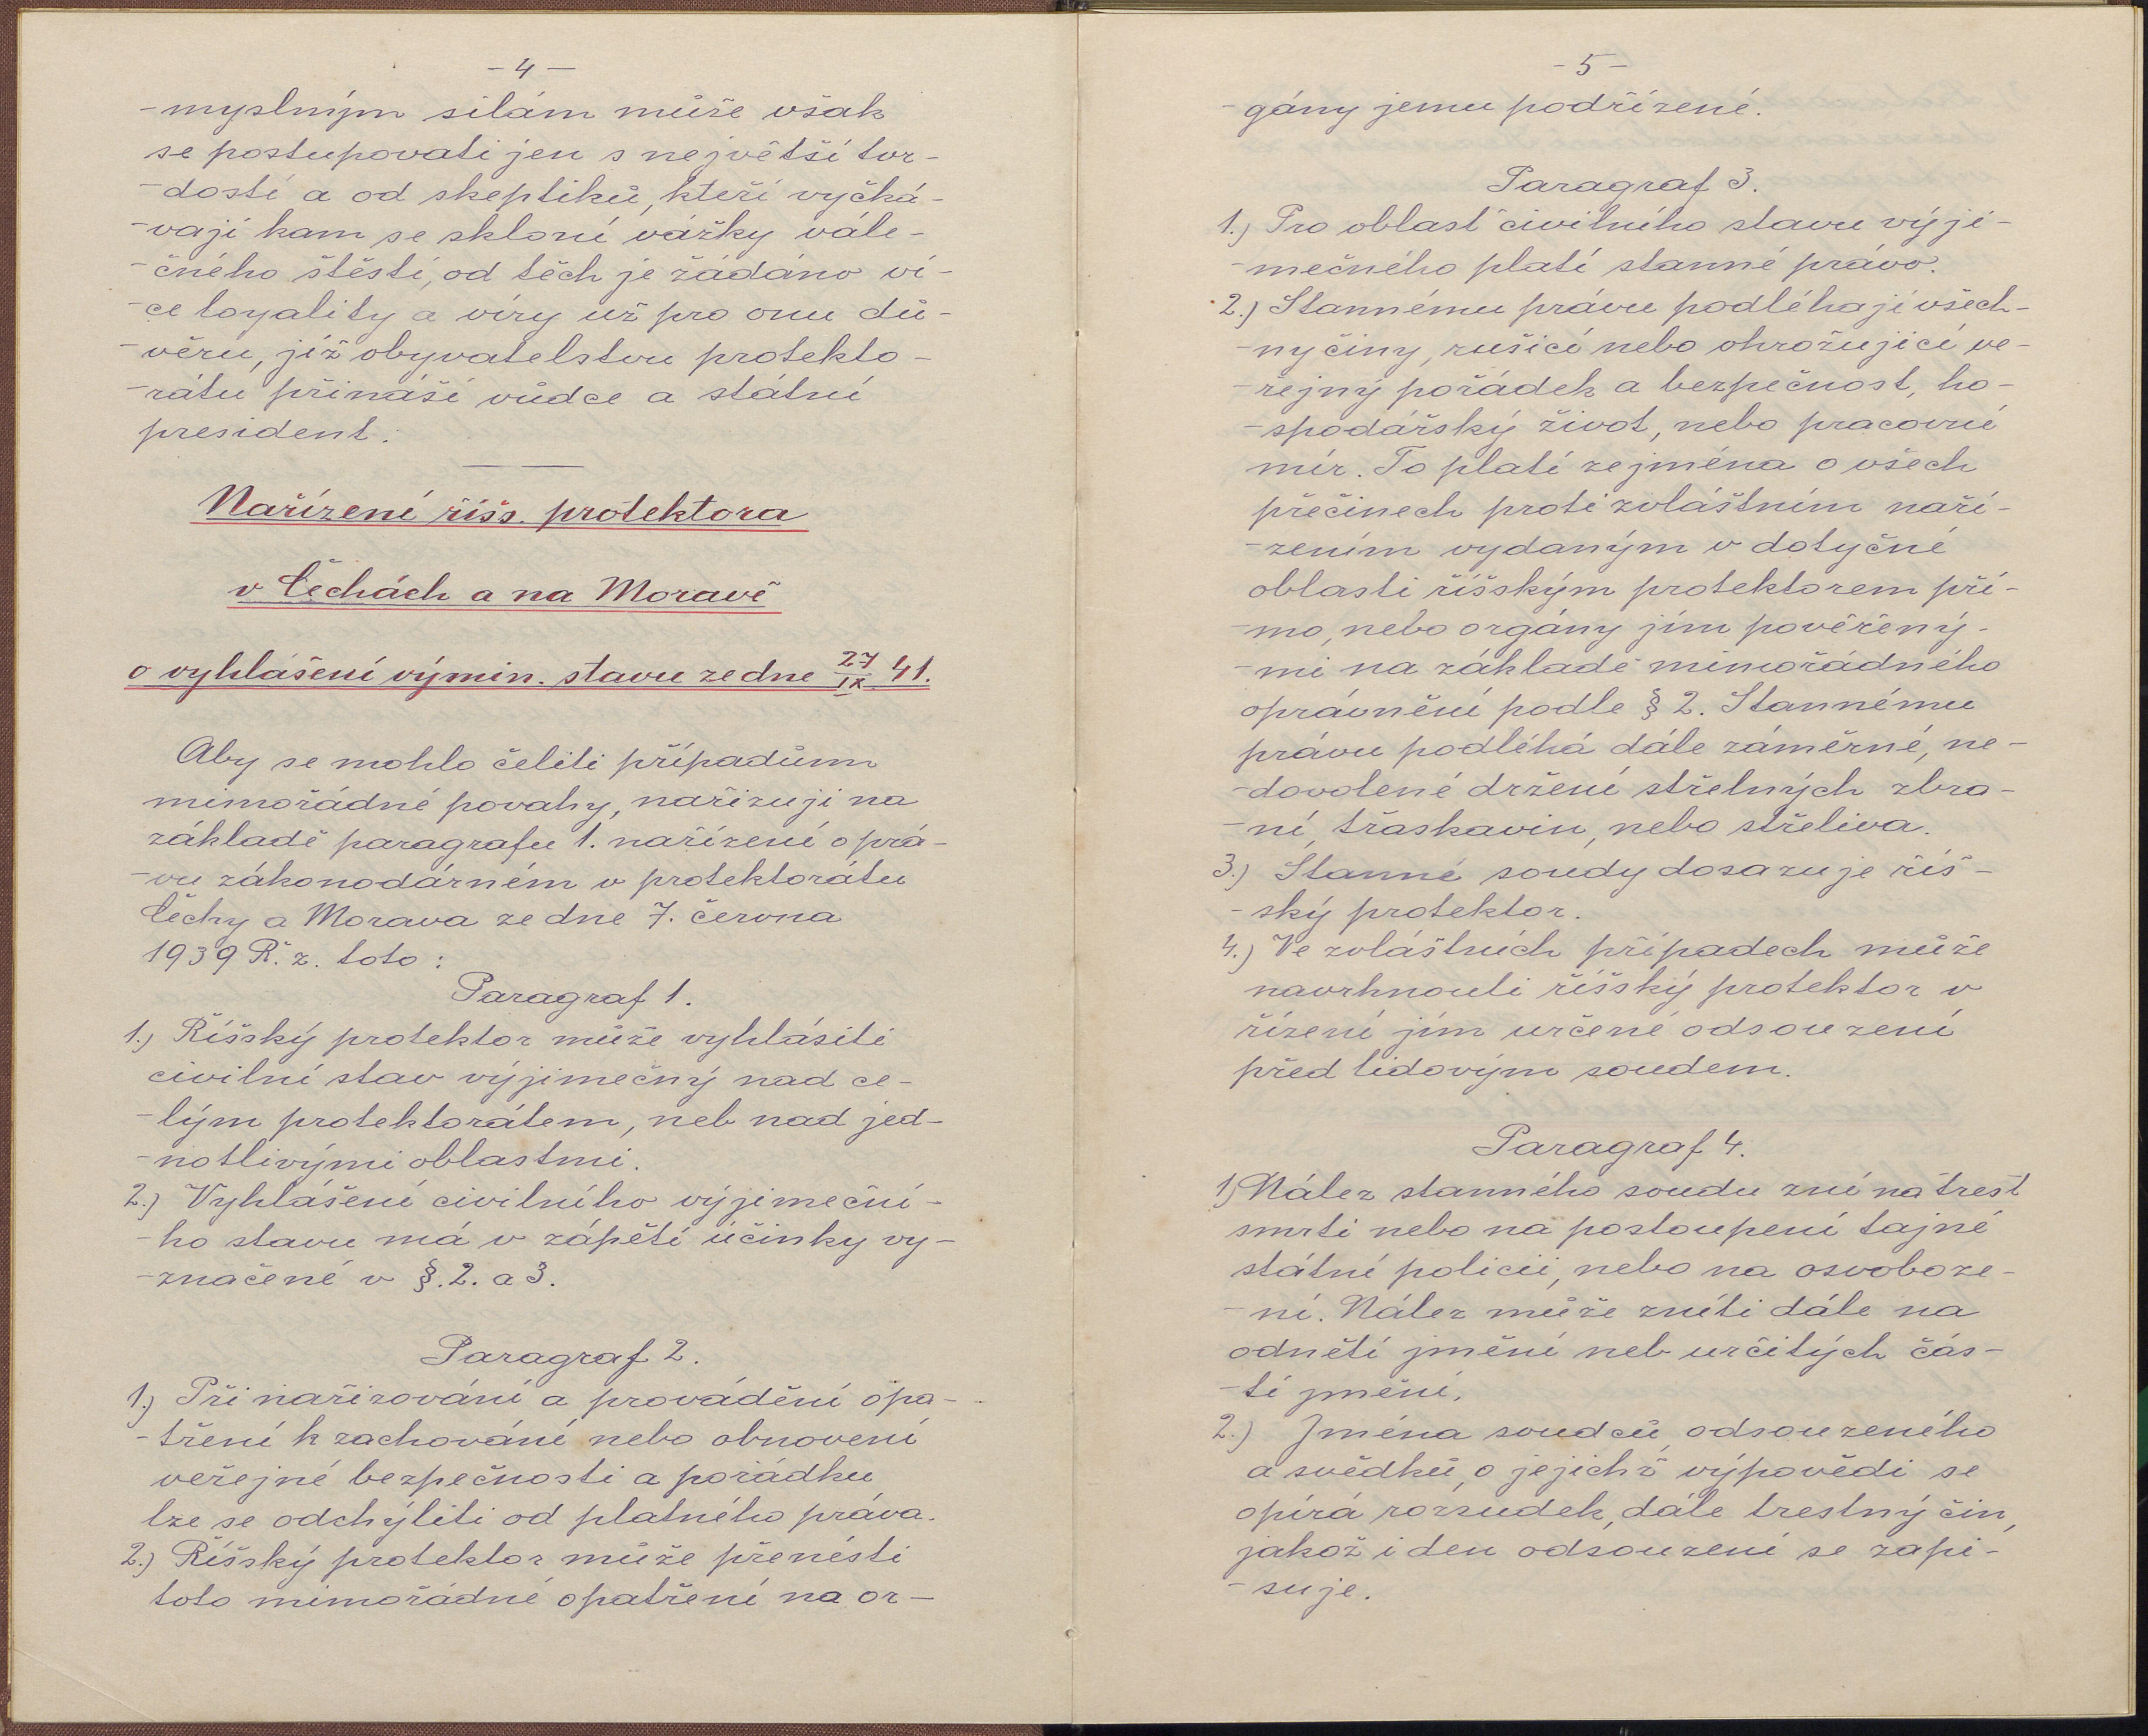 - 4 -
-myslným silám může však
se postupovati jen s největší tvr-
-dostí a od skeptiků, kteří vyčká-
-vají kam se skloní vážky vále-
-čného štěstí, od těch je žádáno ví-
-ce loyality a víry už pro onu dů-
-věru, jíž obyvatelstvu protekto-
-rátu přináší vůdce a státní
president.
Nařízení říšs. protektora
v Čechách a na Moravě
o vyhlášení výmin. stavu ze dne 27/IX 41.
Aby se mohlo čeliti případům
mimořádné povahy, nařizuji na
základě paragrafu 1. nařízení o prá-
-vu zákonodárném v protektorátu
Čechy a Morava ze dne 7. června
1939 Ř. z. toto:
Paragraf 1.
1.) Říšský protektor může vyhlásiti
civilní stav výjimečný nad ce-
-lým protektorátem, neb nad jed-
-notlivými oblastmi.
2.) Vyhlášení civilního výjimeční-
-ho stavu má v zápětí účinky vy-
-značené v §. 2. a 3.
Paragraf 2.
1.) Při nařizování a provádění opa-
-tření k zachování nebo obnovení
veřejné bezpečnosti a pořádku
lze se odchýliti od platného práva.
2.) Říšský protektor může přenésti
toto mimořádné opatření na or-
- 5 -
-gány jemu podřízené.
Paragraf 3.
1.) Pro oblast civilního stavu výji-
-mečného platí stanné právo.
2.) Stannému právu podléhají všech-
-ny činy, rušící nebo ohrožující ve-
-řejný pořádek a bezpečnost, ho-
-spodářský život, nebo pracovní
mír. To platí zejména o všech
přečinech proti zvláštním naří-
-zením vydaným v dotyčné
oblasti říšským protektorem pří-
-mo, nebo orgány jím pověřený-
-mi na základě mimořádného
oprávnění podle § 2. Stannému
právu podléhá dále záměrné, ne-
-dovolené držení střelných zbra-
-ní, třaskavin, nebo střeliva.
3.) Stanné soudy dosazuje říš-
-ský protektor.
4.) Ve zvláštních případech může
navrhnouti říšský protektor v
řízení jím určené odsouzení
před lidovým soudem.
Paragraf 4.
1) Nález stanného soudu zní na trest
smrti nebo na postoupení tajné
státní policii, nebo na osvoboze-
-ní. Nález může zníti dále na
odnětí jmění neb určitých čás-
-tí jmění.
2.) Jména soudců, odsouzeného
a svědků, o jejichž výpovědi se
opírá rozsudek, dále trestný čin,
jakož i den odsouzení se zapi-
-suje.